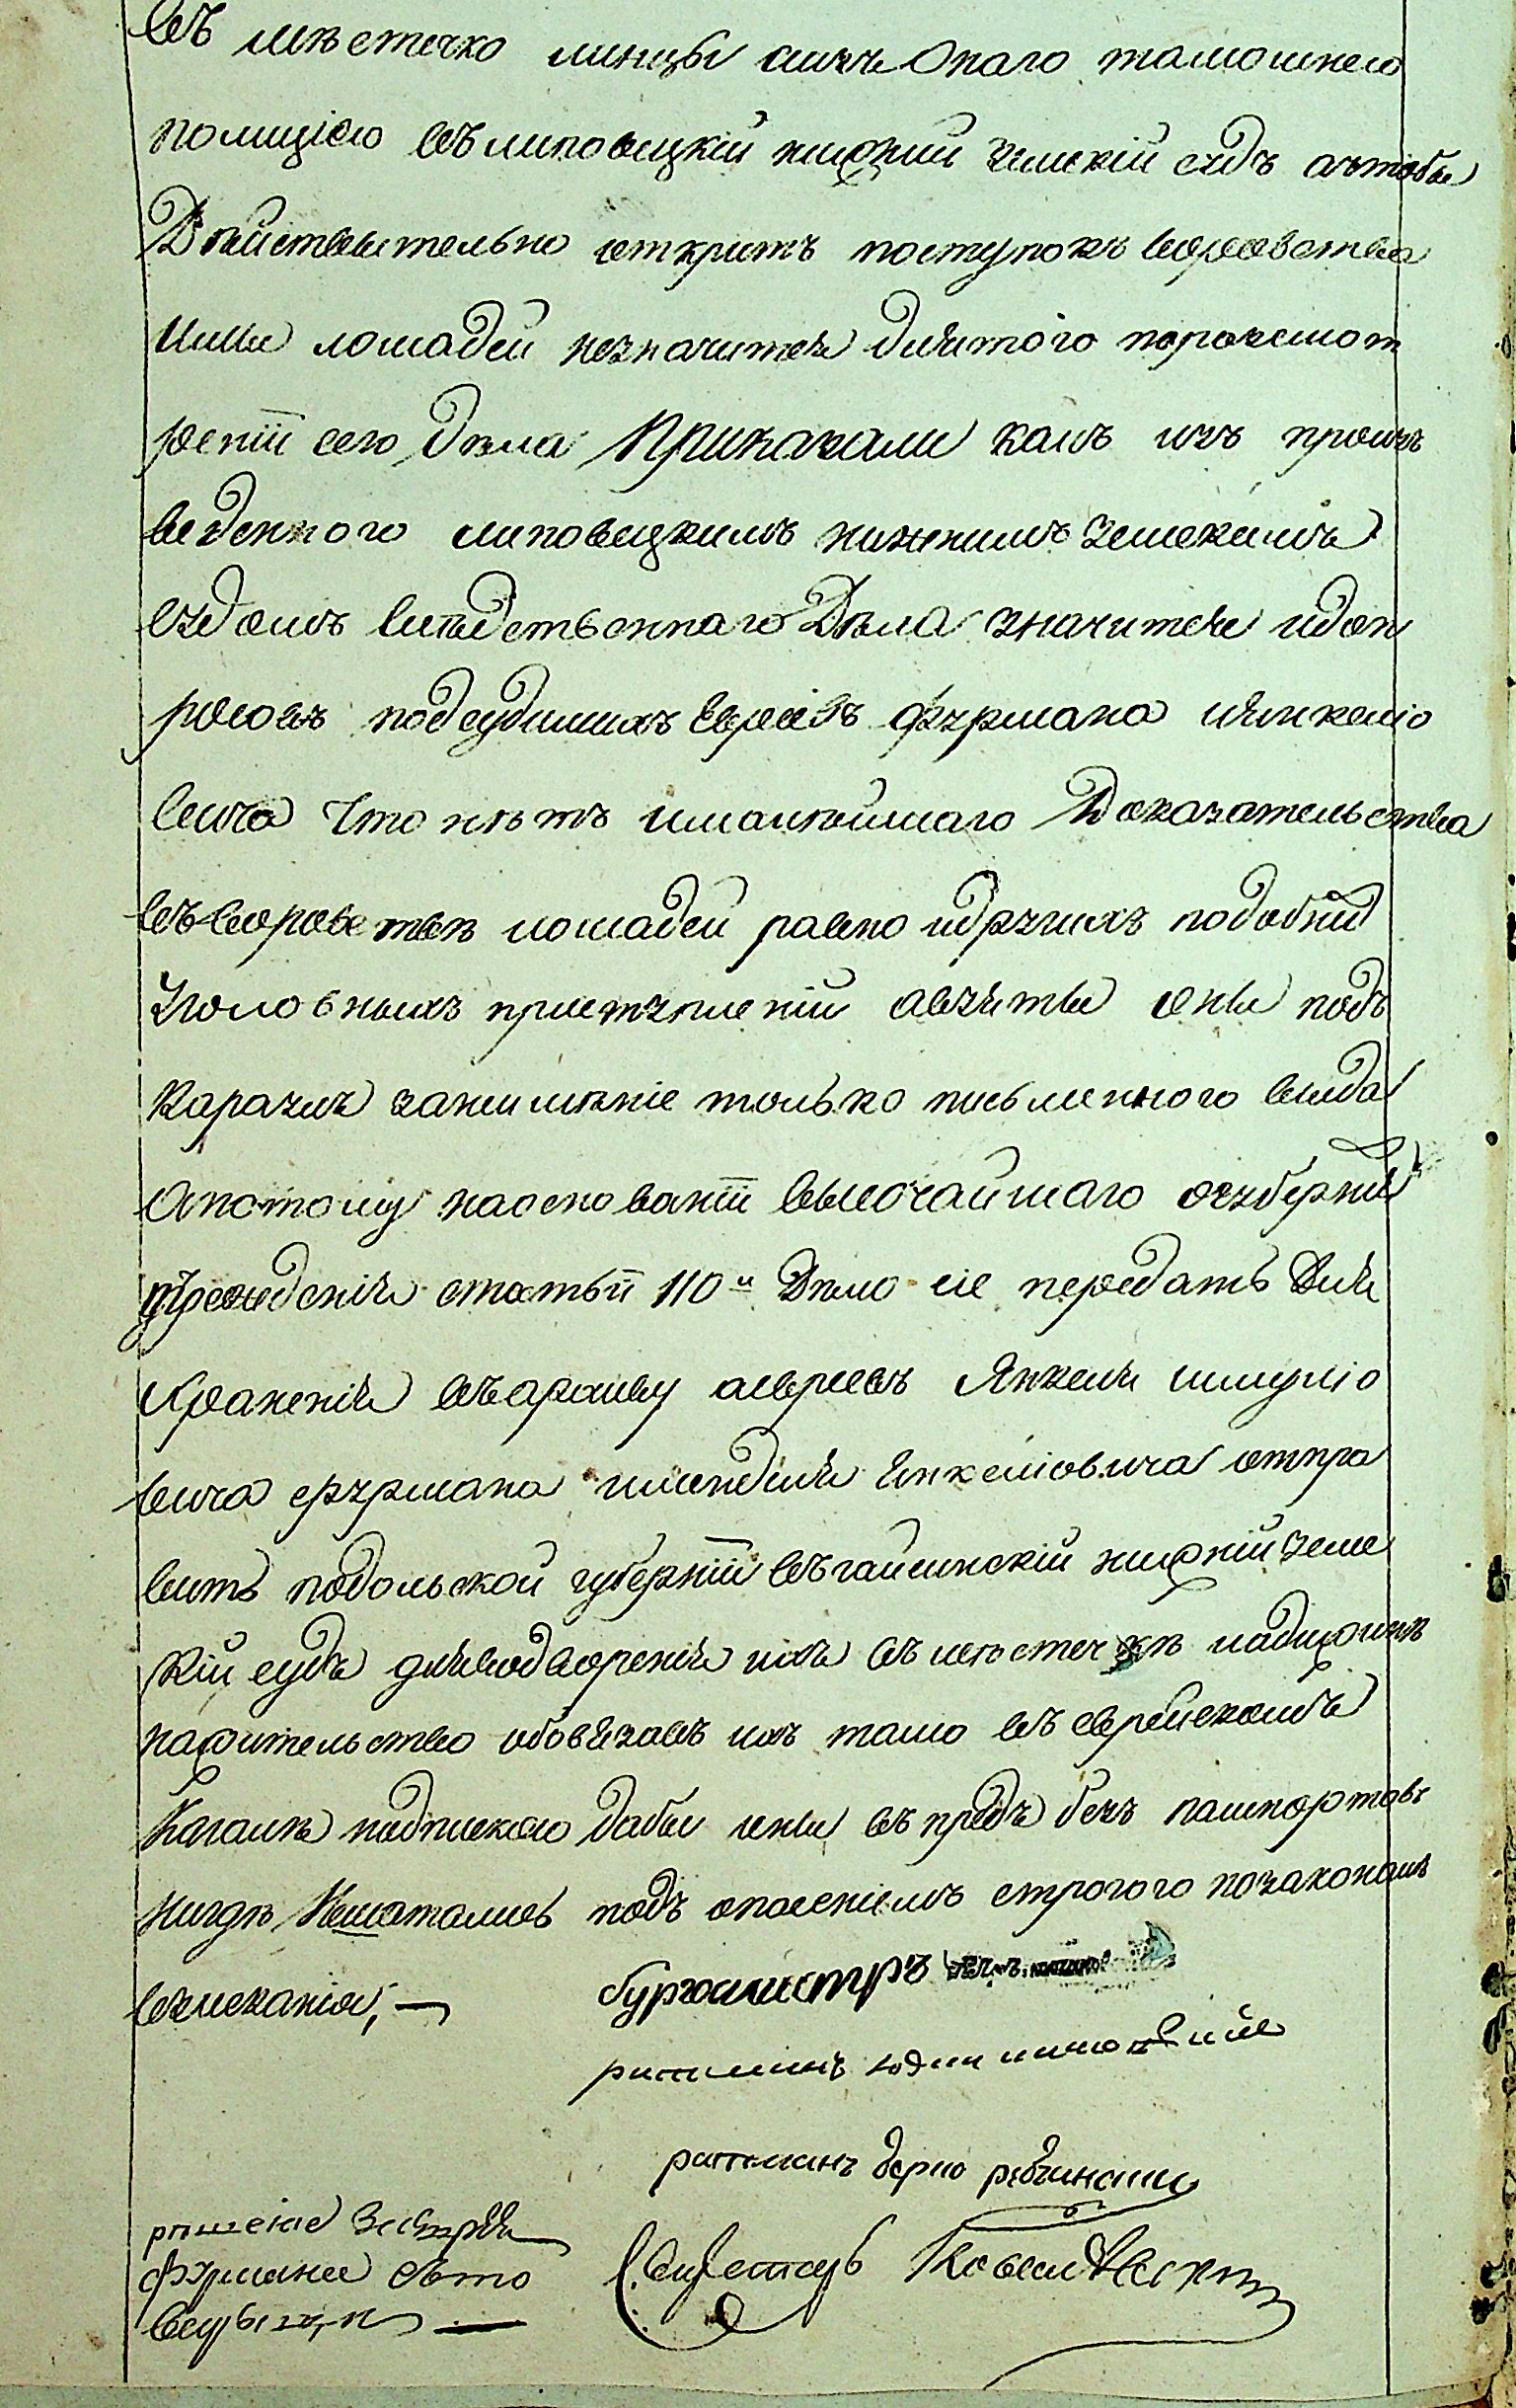 въ мѣстечко линцы аизъ Онаго тамошнею
полициею въ липовецкій нижній земскій судъ ачтобы
Дѣйствительно откритъ поступокъ воровства
ими лошадей незначится Длятого порозсмот
реніи сего дѣла Приказали какъ изъ произ
веденного липовецкимъ нижнимъ земскимъ
судомъ слѣдственнаго Дѣла значится идоп
росовъ подсудимихъ евреевъ фурмана иянкелio
вича Что нѣтъ ималѣйшаго Доказательства
въ воровствѣ лошадей равно идругихъ подобнихъ
уголовныхъ приступленій авзяты они подъ
караулъ занеимѣніе только письменного вида
Апотому наоснованіи высочайшаго огуберніи
учреждения статьи 110й Дѣло сіе передать Для
Храненія въархиву аевреевъ Янкеля шмулio
вича фурмана имендля Янкелioвича отпра
вить подольской губерніи въгайсинскій нижній земс
кій судъ дляводворенія ихъ въ мѣстечкѣ ладижинѣ
нажительство обовязавъ ихъ тамо въ еврейскомъ
Кагалѣ подпискою дабы они въ предъ безъ пашпортовъ
нигдѣ Нешатались подъ опасеніемъ строгого позаконамъ
взисканія, —
бургомистръ
ратманъ
ратманъ берко
решеніе
фурмана
Секретарь